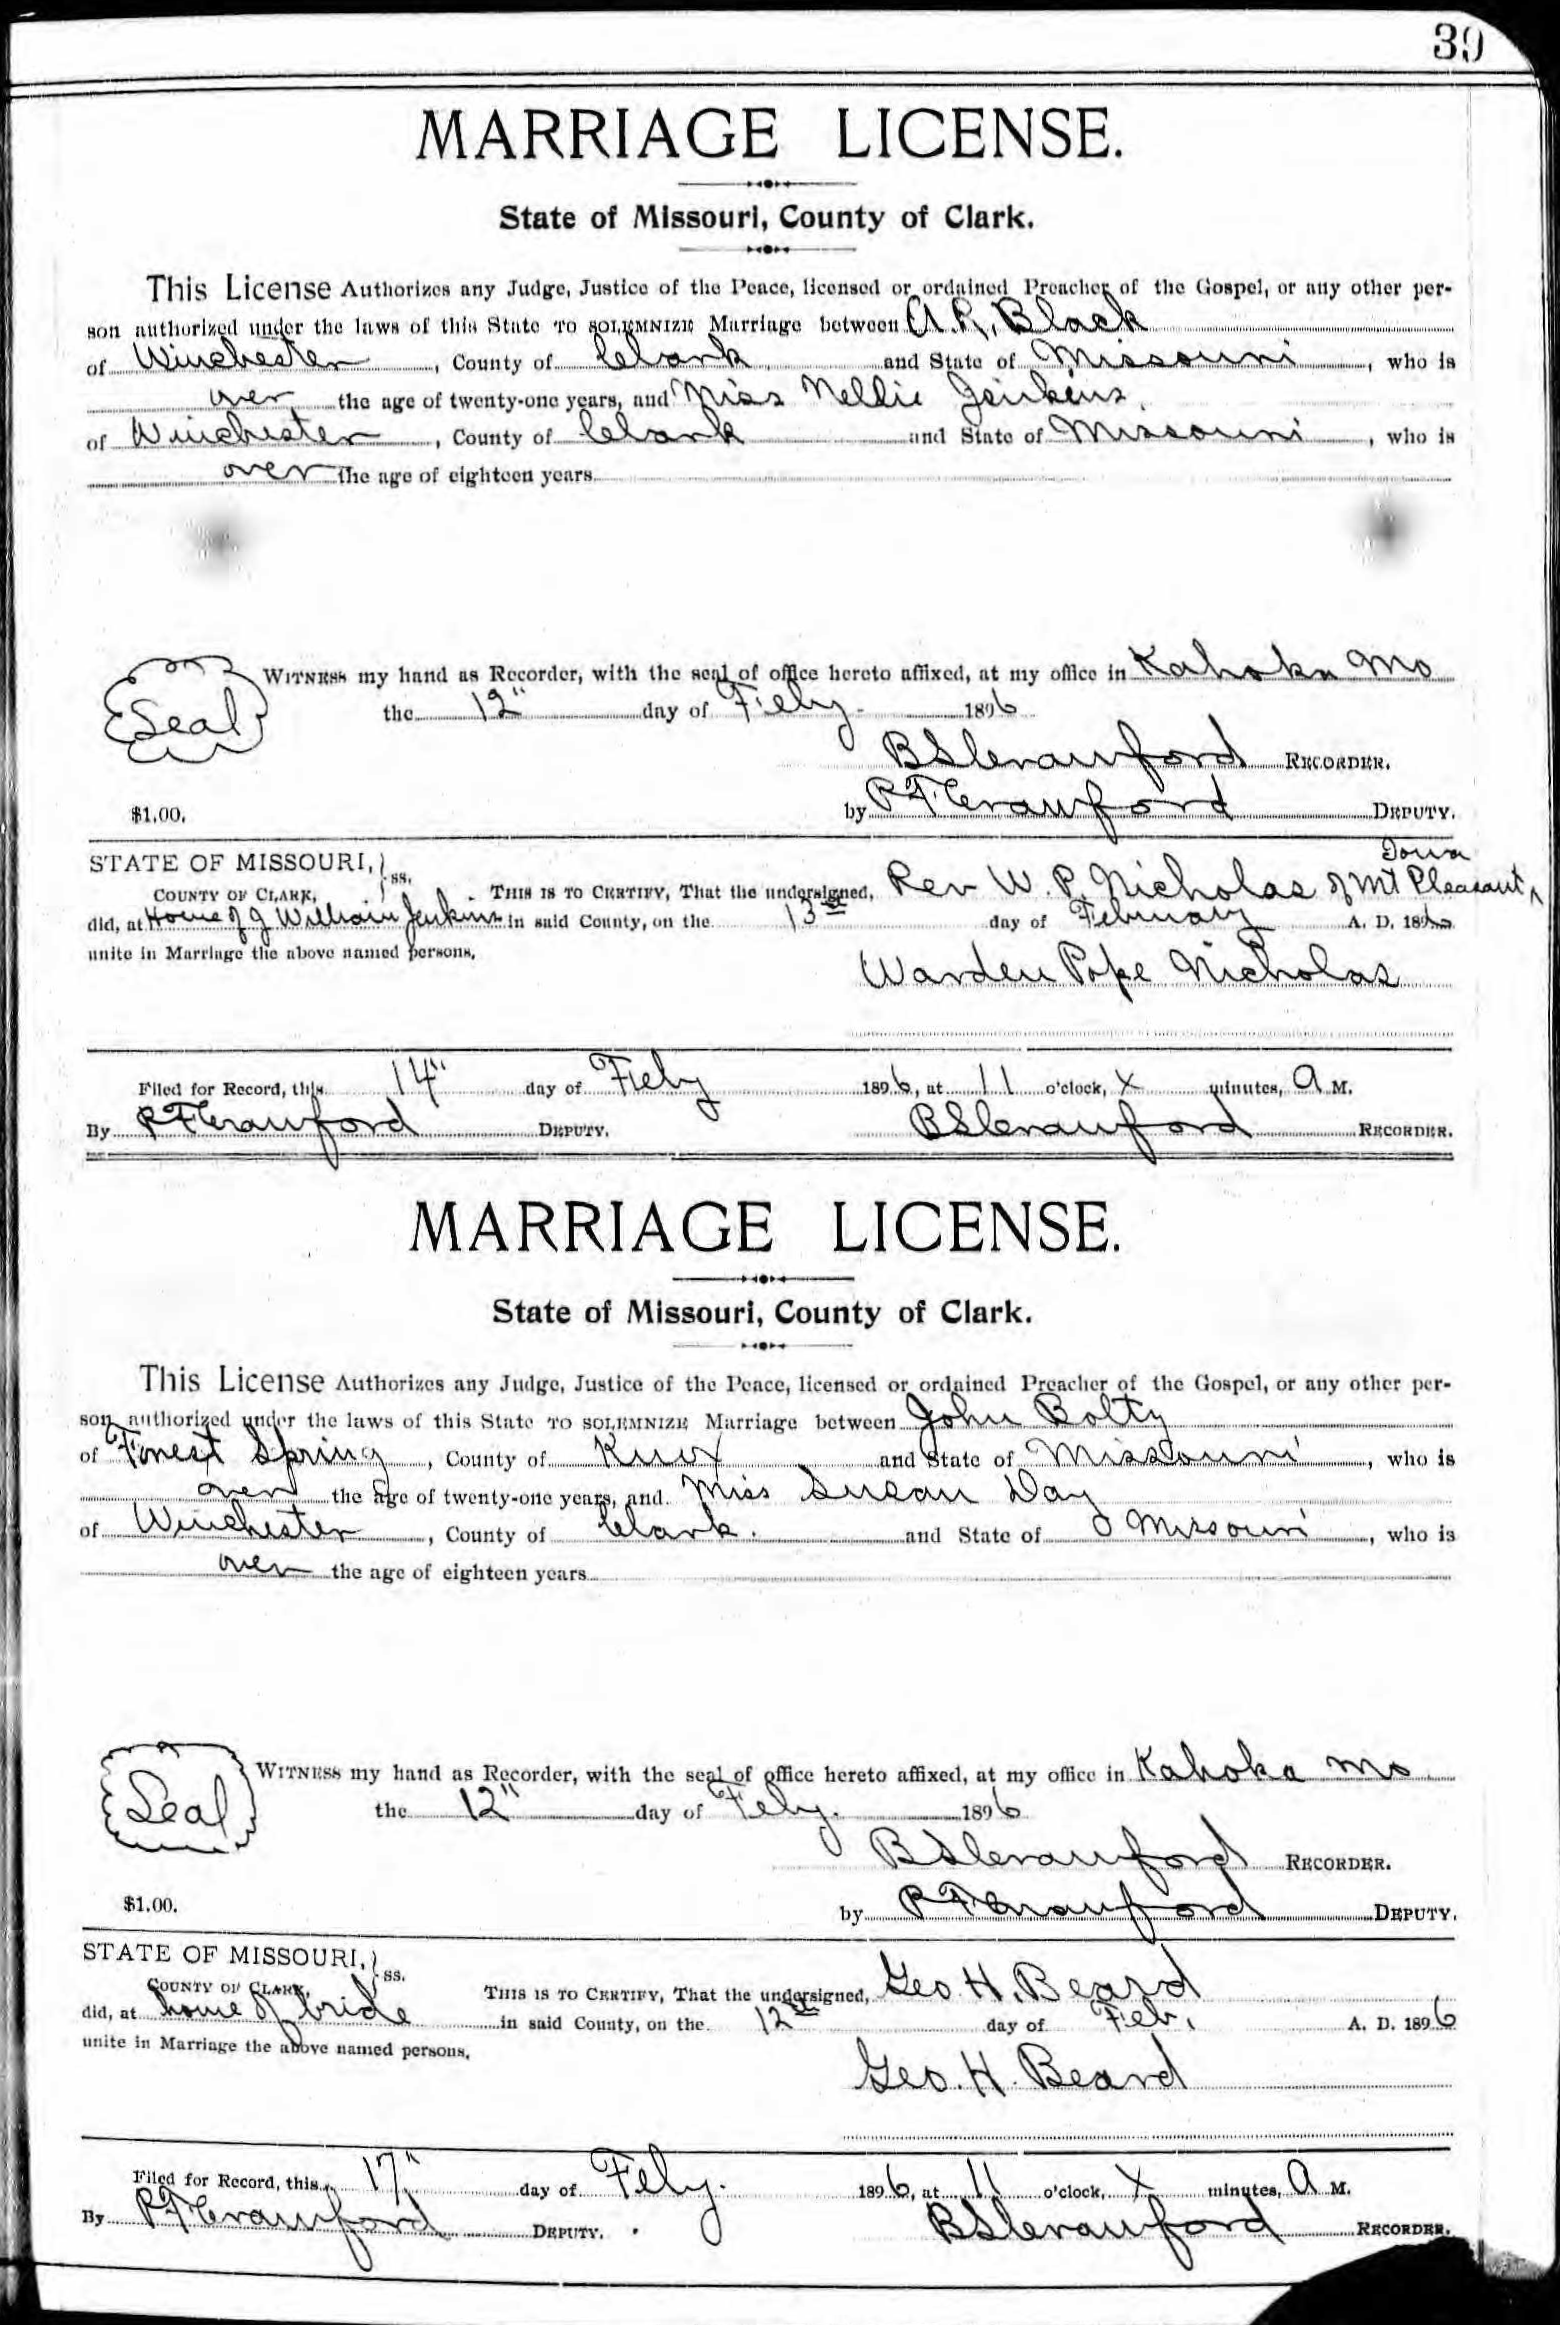 39
MARRIAGE LICENSE.
State of Missouri, County of Clark.
This License Authorizes any Judge, Justice of the Peace, licensed or ordained Preacher of the Gospel, or any other per-
son authorized under the laws of this State TO SOLEMNIZE Marriage between A. R. Black
of Winchester, County of Clark and State of Missouri, who is
over the age of twenty-one years, and Miss Nellie Jenkins.
of Winchester, County of Clark and State of Missouri, who is
over the age of eighteen years.
Seal
WITNESS my hand as Recorder, with the seal of office hereto affixed, at my office in Kahoka Mo
the 12" day of Feby. 1896
B S Crawford RECORDER.
$1.00.
by R F Crawford DEPUTY.
STATE OF MISSOURI, } ss.
COUNTY OF CLARK,
THIS IS TO CERTIFY, That the undersigned, Rev W. P. Nicholas of Mt Pleasant, Iowa
did, at Home of J William Jenkins in said County, on the 13th day of February A. D. 1896
unite in Marriage the above named persons.
Warden Pope Nicholas
Filed for Record, this 14" day of Feby 1896, at 11 o'clock, X minutes, A M.
By R F Crawford DEPUTY. B S Crawford RECORDER.
MARRIAGE LICENSE.
State of Missouri, County of Clark.
This License Authorizes any Judge, Justice of the Peace, licensed or ordained Preacher of the Gospel, or any other per-
son authorized under the laws of this State TO SOLEMNIZE Marriage between John Bolty
of Forest Spring, County of Knox and State of Missouri, who is
over the age of twenty-one years, and Miss Susan Day
of Winchester, County of Clark. and State of Missouri, who is
over the age of eighteen years.
Seal
WITNESS my hand as Recorder, with the seal of office hereto affixed, at my office in Kahoka Mo
the 12" day of Feby. 1896
B S Crawford RECORDER.
$1.00.
by R F Crawford DEPUTY.
STATE OF MISSOURI, } ss.
COUNTY OF CLARK,
THIS IS TO CERTIFY, That the undersigned, Geo. H. Beard
did, at home of bride in said County, on the 12th day of Feb. A. D. 1896
unite in Marriage the above named persons.
Geo. H. Beard
Filed for Record, this 17" day of Feby. 1896, at 11 o'clock, X minutes, A M.
By R F Crawford DEPUTY. B S Crawford RECORDER.